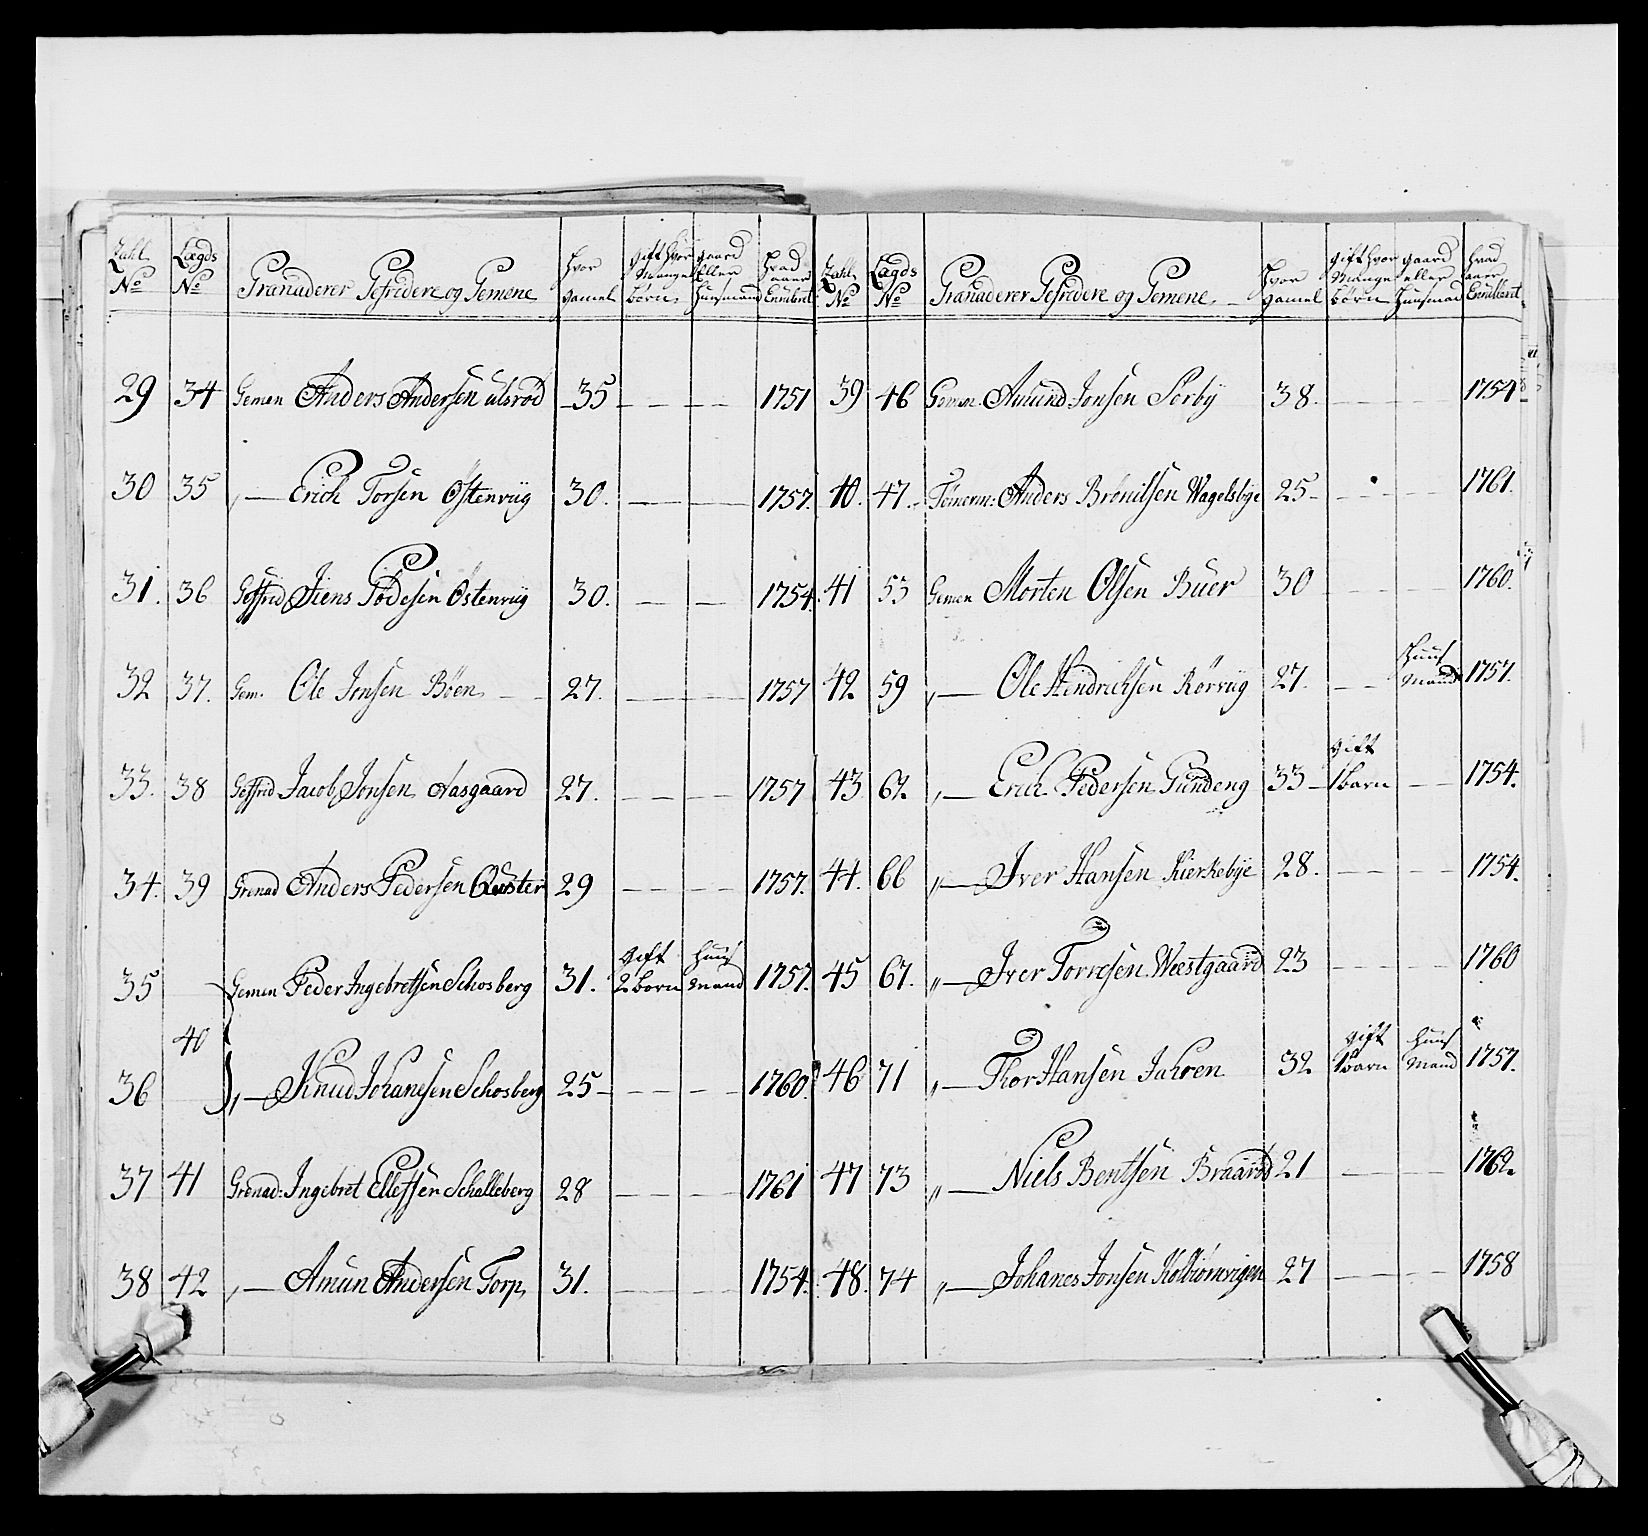 Zahl No Lægds No Granaderer Gefridere og Gemene Hvor gamel gift hvor Mange børn gaard Eller Huusmand Hvad aar Enrulleret
29 34 Gemen Anders Andersen ulsrød 35 1751
30 35 „ Erich Torsen Østenviig 30. 1757.
31. 36 Geffrid Jiens Pødesen Østenviig 30. 1754.
32 37. Gem. Ole Jonsen Böen 27. 1757
33. 38 Geffrid Jacob Jonsen Aasgaard 27. 1757
34. 39 Grenad Anders Pedersen 29 1757.
35 40 Gemen Peder Ingebretsen Schosberg 31. gift 2 børn Huus Mand 1757.
36 „ Knud Johanesen Schosberg 25 1760.
37 41 Grenad: Ingebret Ellefsen Schalleberg 28 1761
38 42 „ Amun Andersen Torp 31. 1754.
Zahl No Lægds No Granaderer Gefridere og Gemene Hvor gamel gift hvor Mange børn gaard eller Huusmand Hvad aar Enrulleret
39 46 Gemen Amund Jonsen Sørby 38. 1754
40. 47. Tömerm: Anders Wagelsbye 25 1761.
41 53 Gemen Morten Olsen Buer 30 1760.
42 59 „ Ole Hendrichsen Rørviig 27. Huus Mand 1757.
43 62. „ Erich Pedersen Gundeng 33 gift 1 barn 1754.
44. 66 „ Iver Hansen Kierkebye 28. 1754.
45 67. „ Iver Torresen Westgaard 23 1760
46 71 „ Thor Hansen Jahren 32 gift 1 barn Huus Mand 1757.
47 73 „ Niels Bentsen Braarød 21 1762.
48. 74 „ Johanes Jonsen Kolbiørnvigen 27 1758